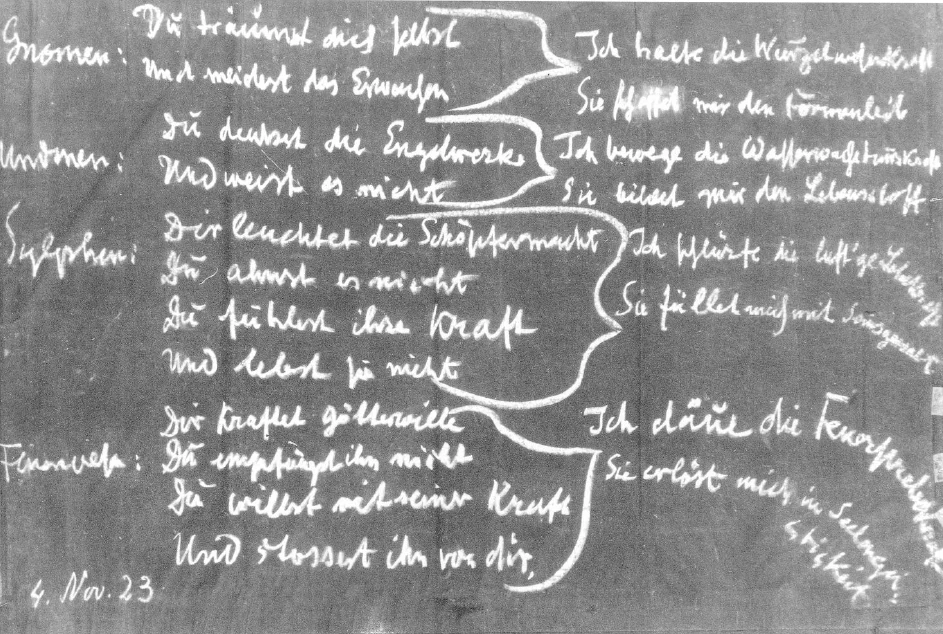 Gnomen: Du träumst dich selbst
Und meidest das Erwachen
Ich halte die Wurzelwesenskraft
Sie schaffet mir den Formenleib
Undinen: Du denkst die Engelwerke
Und weist es nicht
Ich bewege die Wasserwachstumskraft
Sie bildet mir den Lebensstoff
Sylphen: Dir leuchtet die Schöpfermacht
Du ahnst es nicht
Du fühlest ihre Kraft
Und lebest sie nicht
Ich schlürfe die luft'ge Lebekraft
Sie füllet mich mit Seinsgewalt
Dir kraftet Götterwille
Feuerwesen: Du empfängst ihn nicht
Du willst mit seiner Kraft
Und stossest ihn von dir,
Ich däue die Feuerstrebekraft
Sie erlöst mich in Seelengei-
stigkeit
4. Nov. 23